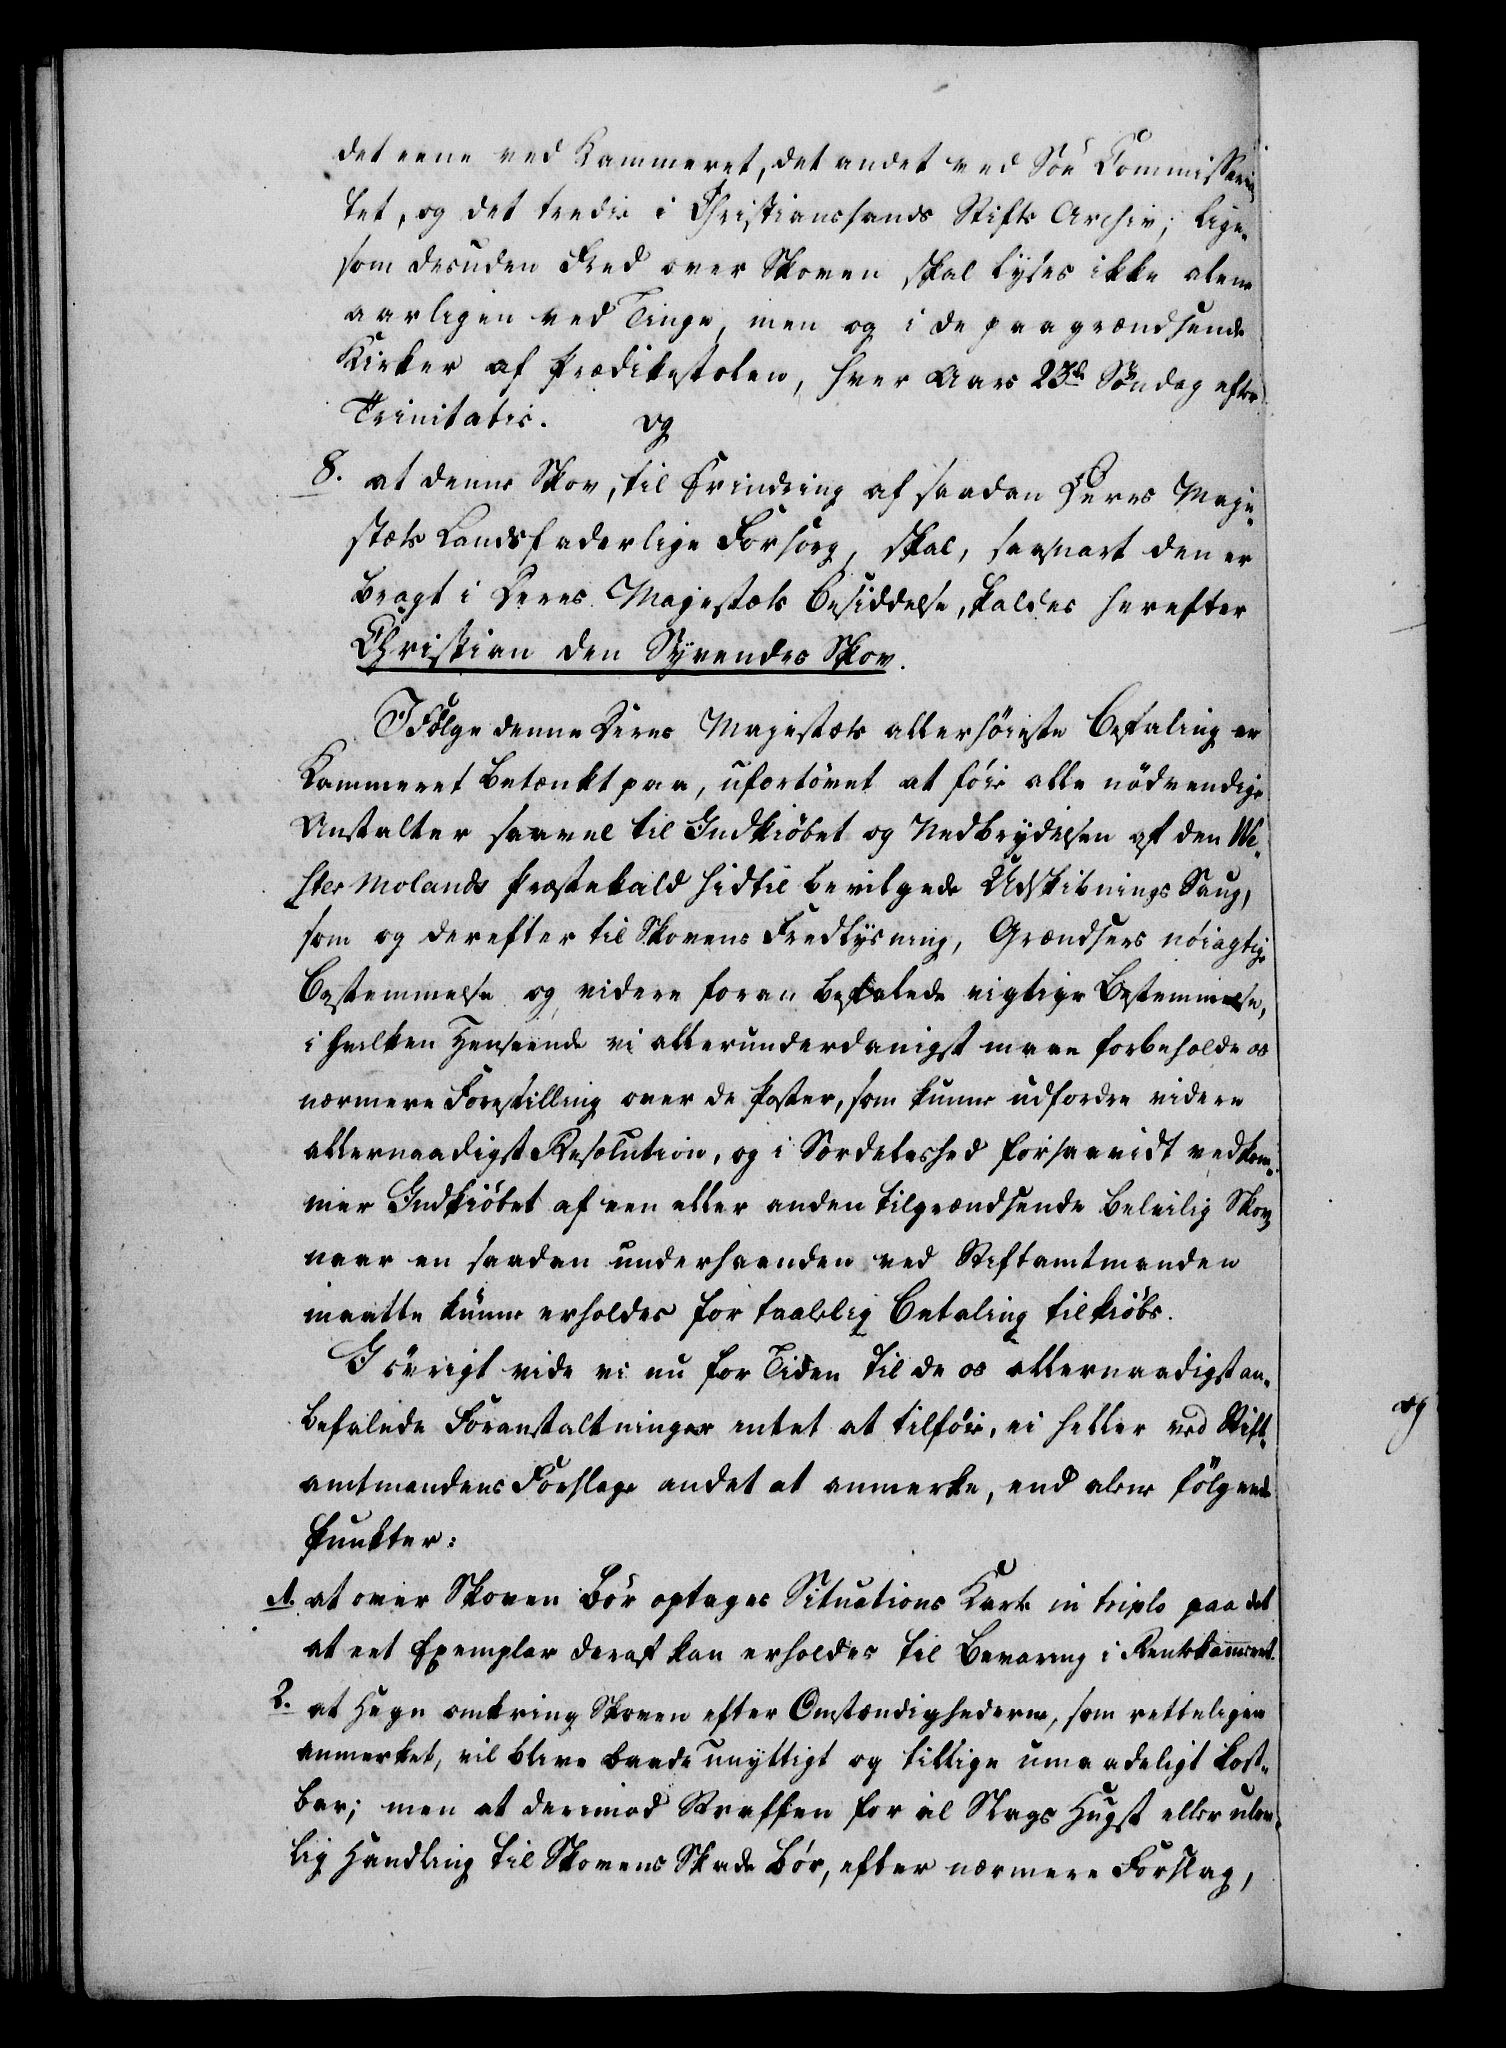 det eene ved Kammeret, det andet ved Söe Commissaria
tet, og det tredie i Christianssands Stifts Archiv; lige-
som desuden Fred over Skoven skal lyses ikke alene
aarligen ved Tinge, men og i de paagrændsende
Kirker af Prædikestolen, hver Aars 23de Söndag efter
Trinitatis. og
8. at denne Skov, til Erindring af saadan Deres Maje-
stæts Landsfaderlige Forsorg, skal, saasnart den er
bragt i Deres Majestæts Besiddelse, kaldes herefter
Christian den Syvendes Skov.
Ifölge denne Deres Majestæts allerhöieste Befaling er
Kammeret betænkt paa, ufortövet at föie alle nödvendige
Anstalter saavel til Indkiöbet og Nedbrydelsen af den We-
ster Molands Præstekald hidtil bevilgede Udskibnings Saug,
som og derefter til Skovens Fredlysning, Grændsers nöiagtige
Bestemmelse og videre foran befalede vigtige Bestemmelse,
i hvilken Henseende vi allerunderdanigst maae forbeholde os
nærmere Forestilling over de Poster, som kunne udfordre videre
allernaadigst Resolution, og i Særdeleshed forsaavidt vedkom-
mer Indkiöbet af een eller anden tilgrændsende beleilig Skov,
naar en saadan underhaanden ved Stiftamtmanden
maatte kunne erholdes for taalelig Betaling tilkiöbs.
I övrigt vide vi nu for Tiden til de os allernaadigst an-
befalede Foranstaltninger intet at tilföie, ei heller ved Stift-
amtmandens Forslage andet at anmerke, end alene fölgende
Punkter:
1. at over Skoven bör optages Situations Kart in triplo paa det
at eet Exemplar deraf kan erholdes til Bevaring i Rentekammeret.
2. at Hegn omkring Skoven efter Omstændighederne, som retteligen
anmerket, vil blive baade unyttigt og tillige umaadeligt kost-
bar; men at derimod Straffen for al Slags Hugst eller ulov-
lig Handling til Skovens Skade bör, efter nærmere Forslag,
og